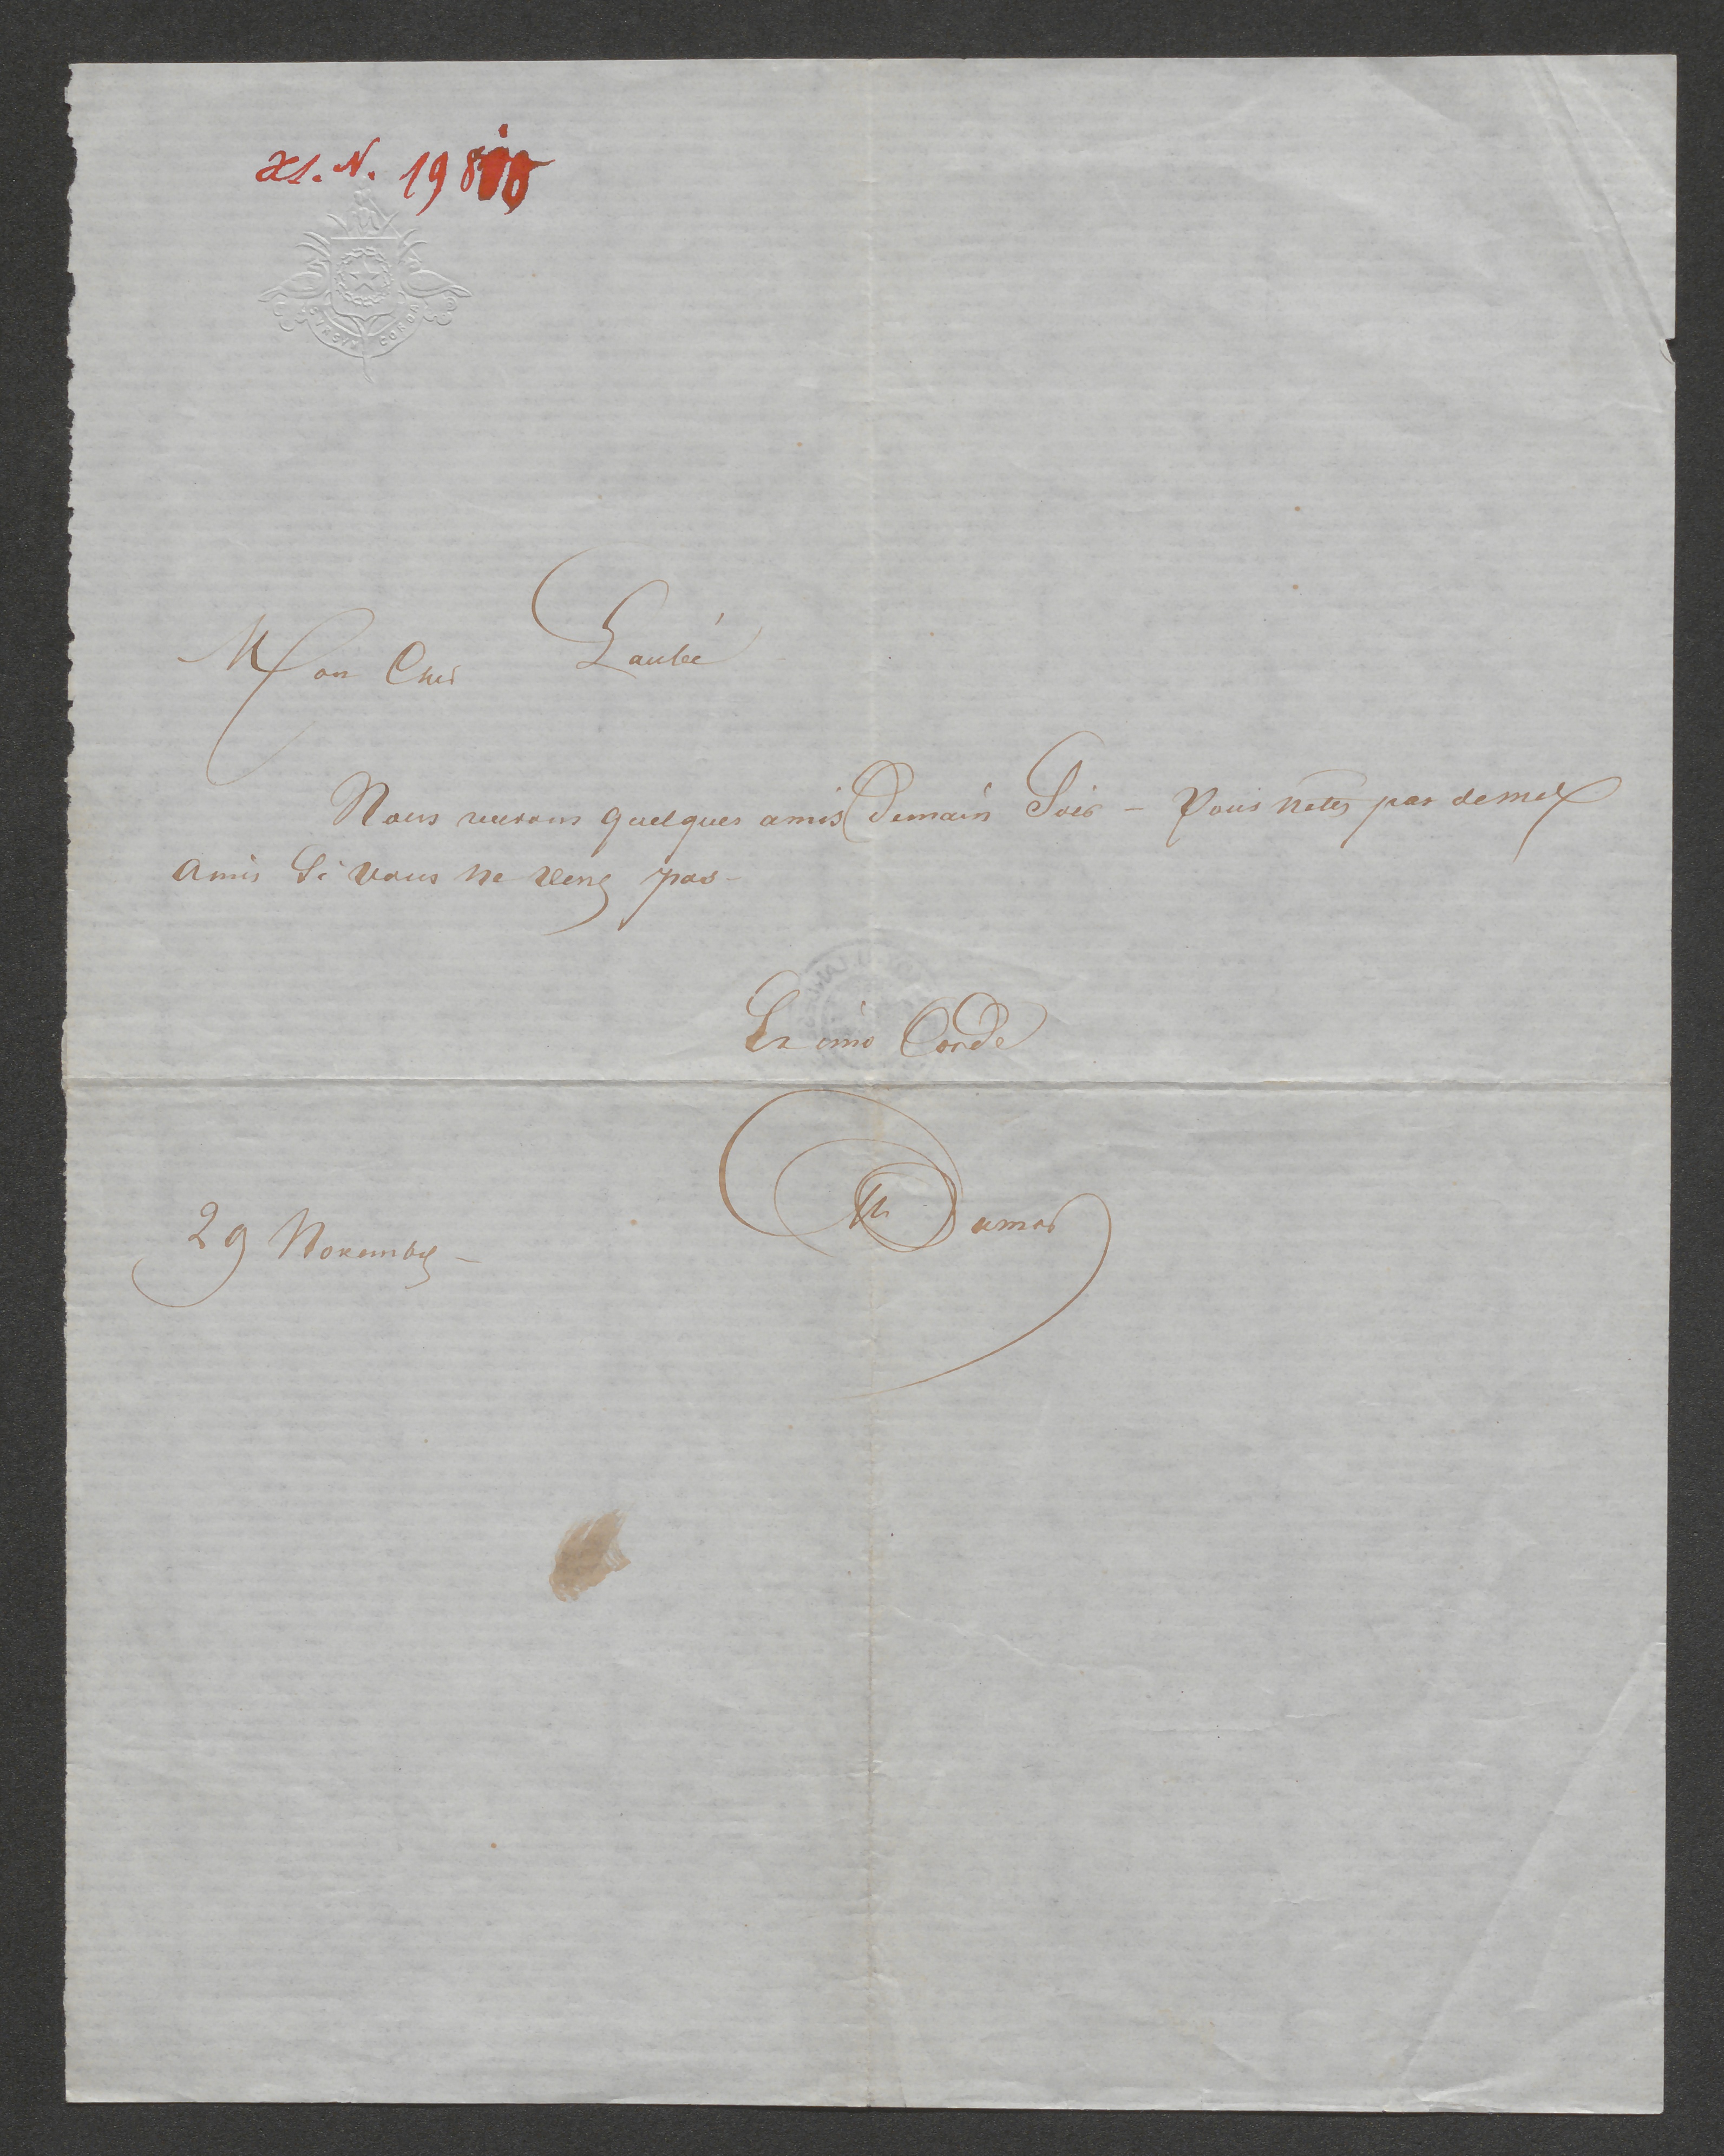 H. N. 198
Mon Cher Laubé
Nous aurons quelques amis Demain Soir - Vous netes pas de mes
amis Si vous ne venez pas -
Ex imo Corde
29 Novembre -